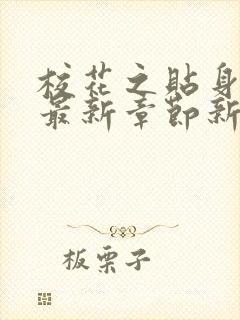 校花之贴身
最新章节新
板栗子